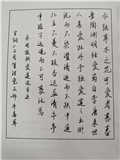 水陸草木之花可愛者甚蕃
晋陶淵明獨愛菊自李唐来世
人甚愛牡丹予獨愛蓮之出淤
泥而不染濯清漣而不妖中通
外直不蔓不枝香遠益清亭亭
净植可遠觀而不可褻玩焉